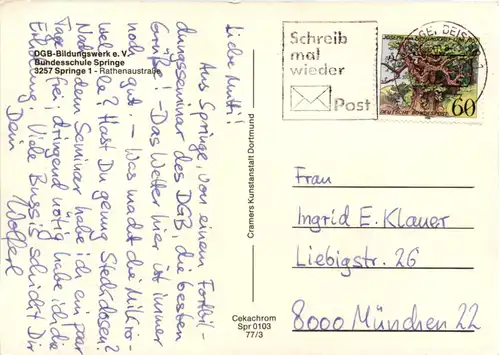 DGB-Bildungswerk e. V.
Bundesschule Springe
3257 Springe 1 - Rathenaustraße
Liebe Mutti!
Aus Springe, von einem Fortbil-
dungsseminar des DGB, die besten
Grüße! - Das Wetter hier ist immer
noch gut. - Was macht die Mikro-
welle? Hast Du genug Steckdosen?
Nach dem Seminar habe ich ein paar
Tage frei, dringend nötig habe ich die
Erholung. Viele Bussis schickt Dir
Dein Wolferl
Cramers Kunstanstalt Dortmund
Cekachrom
Spr 0103
77/3
Schreib
mal
wieder
Post
60
DEUTSCHE BUNDESPOST
Frau
Ingrid E. Klauer
Liebigstr. 26
8000 München 22